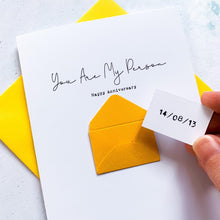 You Are My Person
Happy Anniversary
14/08/13